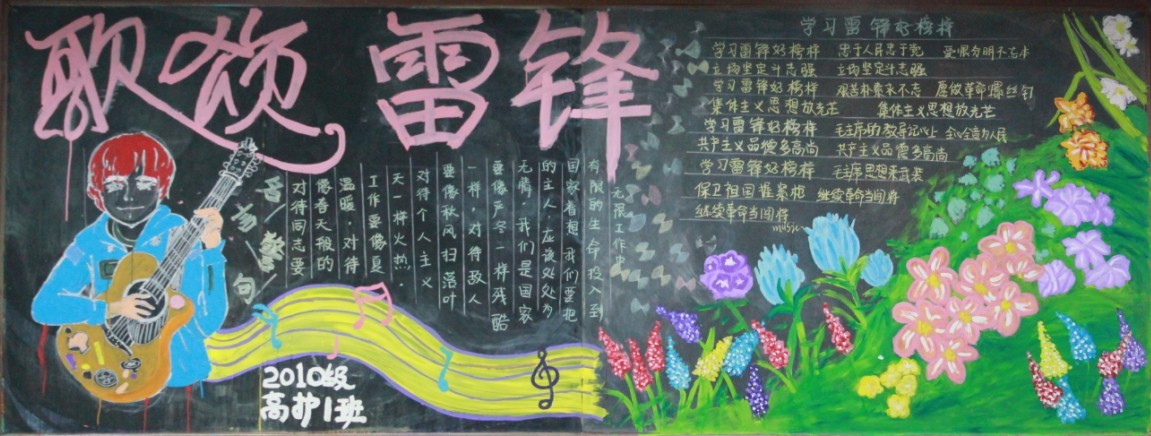 歌颂 雷锋
名言警句
对待同志要
像春天般的
温暖,对待
工作要像夏
天一样火热,
对待个人主义
要像秋风扫落叶
一样,对待敌人
要像严冬一样残酷
无情,我们是国家
的主人,应该处处为
国家着想,我们要把
有限的生命投入到
无限工作中
学习雷锋好榜样
学习雷锋好榜样 忠于人民忠于党 爱憎分明不忘本
立场坚定斗志强 立场坚定斗志强
学习雷锋好榜样 艰苦朴素永不忘 愿做革命螺丝钉
集体主义思想放光芒 集体主义思想放光芒
学习雷锋好榜样 毛主席的教导记心上 全心全意为人民
共产主义品德多高尚 共产主义品德多高尚
学习雷锋好榜样 毛主席思想来武装
保卫祖国握紧枪 继续革命当闯将
继续革命当闯将
music
2010级
高护1班